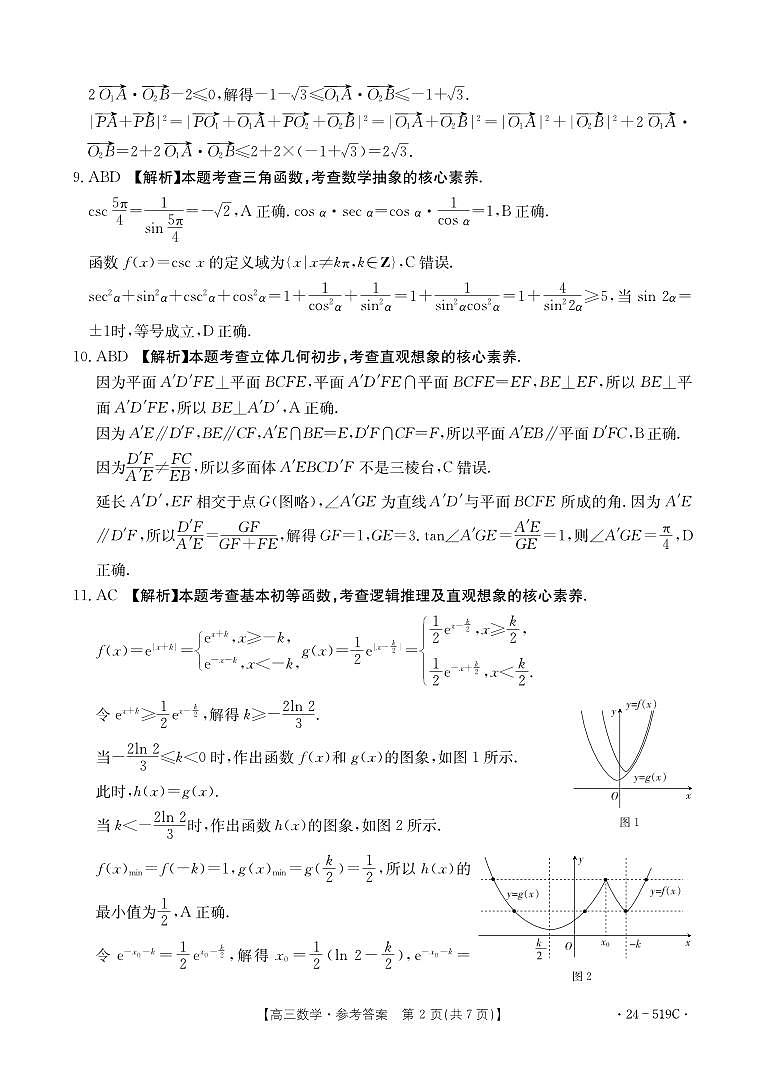 2 O₁A→·O₂B→-2≤0,解得-1-√3≤O₁A→·O₂B→≤-1+√3.
|PA→+PB→|²=|PO₁→+O₁A→+PO₂→+O₂B→|²=|O₁A→+O₂B→|²=|O₁A→|²+|O₂B→|²+2 O₁A→·
O₂B→=2+2 O₁A→·O₂B→≤2+2×(-1+√3)=2√3.
9. ABD 【解析】本题考查三角函数,考查数学抽象的核心素养.
csc 5π/4=1/(sin 5π/4)=-√2,A 正确. cos α·sec α=cos α·1/cos α=1,B 正确.
函数 f(x)=csc x 的定义域为{x|x≠kπ,k∈Z},C 错误.
sec²α+sin²α+csc²α+cos²α=1+1/cos²α+1/sin²α=1+1/(sin²αcos²α)=1+4/sin²2α≥5,当 sin 2α=
±1时,等号成立,D 正确.
10. ABD 【解析】本题考查立体几何初步,考查直观想象的核心素养.
因为平面 A′D′FE⊥平面 BCFE,平面 A′D′FE∩平面 BCFE=EF,BE⊥EF,所以 BE⊥平
面 A′D′FE,所以 BE⊥A′D′,A 正确.
因为 A′E∥D′F,BE∥CF,A′E∩BE=E,D′F∩CF=F,所以平面 A′EB∥平面 D′FC,B 正确.
因为D′F/A′E≠FC/EB,所以多面体 A′EBCD′F 不是三棱台,C 错误.
延长 A′D′,EF 相交于点 G(图略),∠A′GE 为直线 A′D′与平面 BCFE 所成的角. 因为 A′E
∥D′F,所以D′F/A′E=GF/(GF+FE),解得 GF=1,GE=3. tan∠A′GE=A′E/GE=1,则∠A′GE=π/4,D
正确.
11. AC 【解析】本题考查基本初等函数,考查逻辑推理及直观想象的核心素养.
f(x)=e^|x+k|={e^(x+k),x≥-k, e^(-x-k),x<-k, g(x)=1/2 e^|x-k/2|={1/2 e^(x-k/2),x≥k/2, 1/2 e^(-x+k/2),x<k/2.
令 e^(x+k)≥1/2 e^(x-k/2),解得 k≥-2ln 2/3.
当-2ln 2/3≤k<0 时,作出函数 f(x)和 g(x)的图象,如图 1 所示.
此时,h(x)=g(x).
y y=f(x)
y=g(x)
O x
图1
当 k<-2ln 2/3时,作出函数 h(x)的图象,如图 2 所示.
f(x)min=f(-k)=1,g(x)min=g(k/2)=1/2,所以 h(x)的
最小值为1/2,A 正确.
令 e^(-x₀-k)=1/2 e^(x₀-k/2),解得 x₀=1/2(ln 2-k/2),e^(-x₀-k)=
y
y=g(x) y=f(x)
k/2 O x₀ -k x
图2
【高三数学·参考答案 第 2 页(共 7 页)】 ·24-519C·